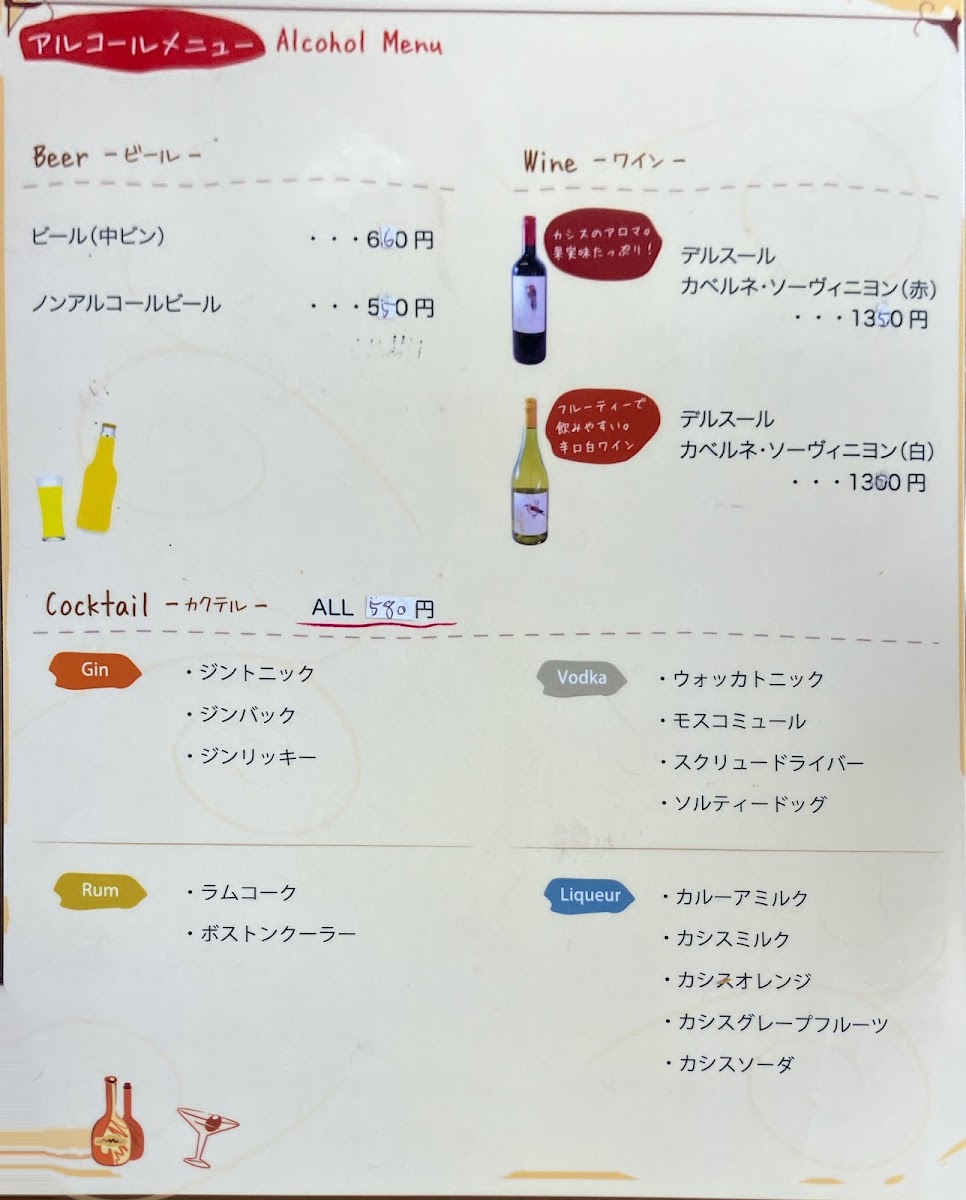 アルコールメニュー Alcohol Menu
Beer -ビール-
ビール(中ビン) ・・・660円
ノンアルコールビール ・・・550円
Wine -ワイン-
カシスのアロマ。
果実味たっぷり!
デルスール
カベルネ・ソーヴィニヨン(赤)
・・・1350円
フルーティーで
飲みやすい。
辛口白ワイン
デルスール
カベルネ・ソーヴィニヨン(白)
・・・円
Cocktail -カクテル- ALL 580円
Gin
・ジントニック
・ジンバック
・ジンリッキー
Vodka
・ウォッカトニック
・モスコミュール
・スクリュードライバー
・ソルティードッグ
Rum
・ラムコーク
・ボストンクーラー
Liqueur
・カルーアミルク
・カシスミルク
・カシスオレンジ
・カシスグレープフルーツ
・カシスソーダ